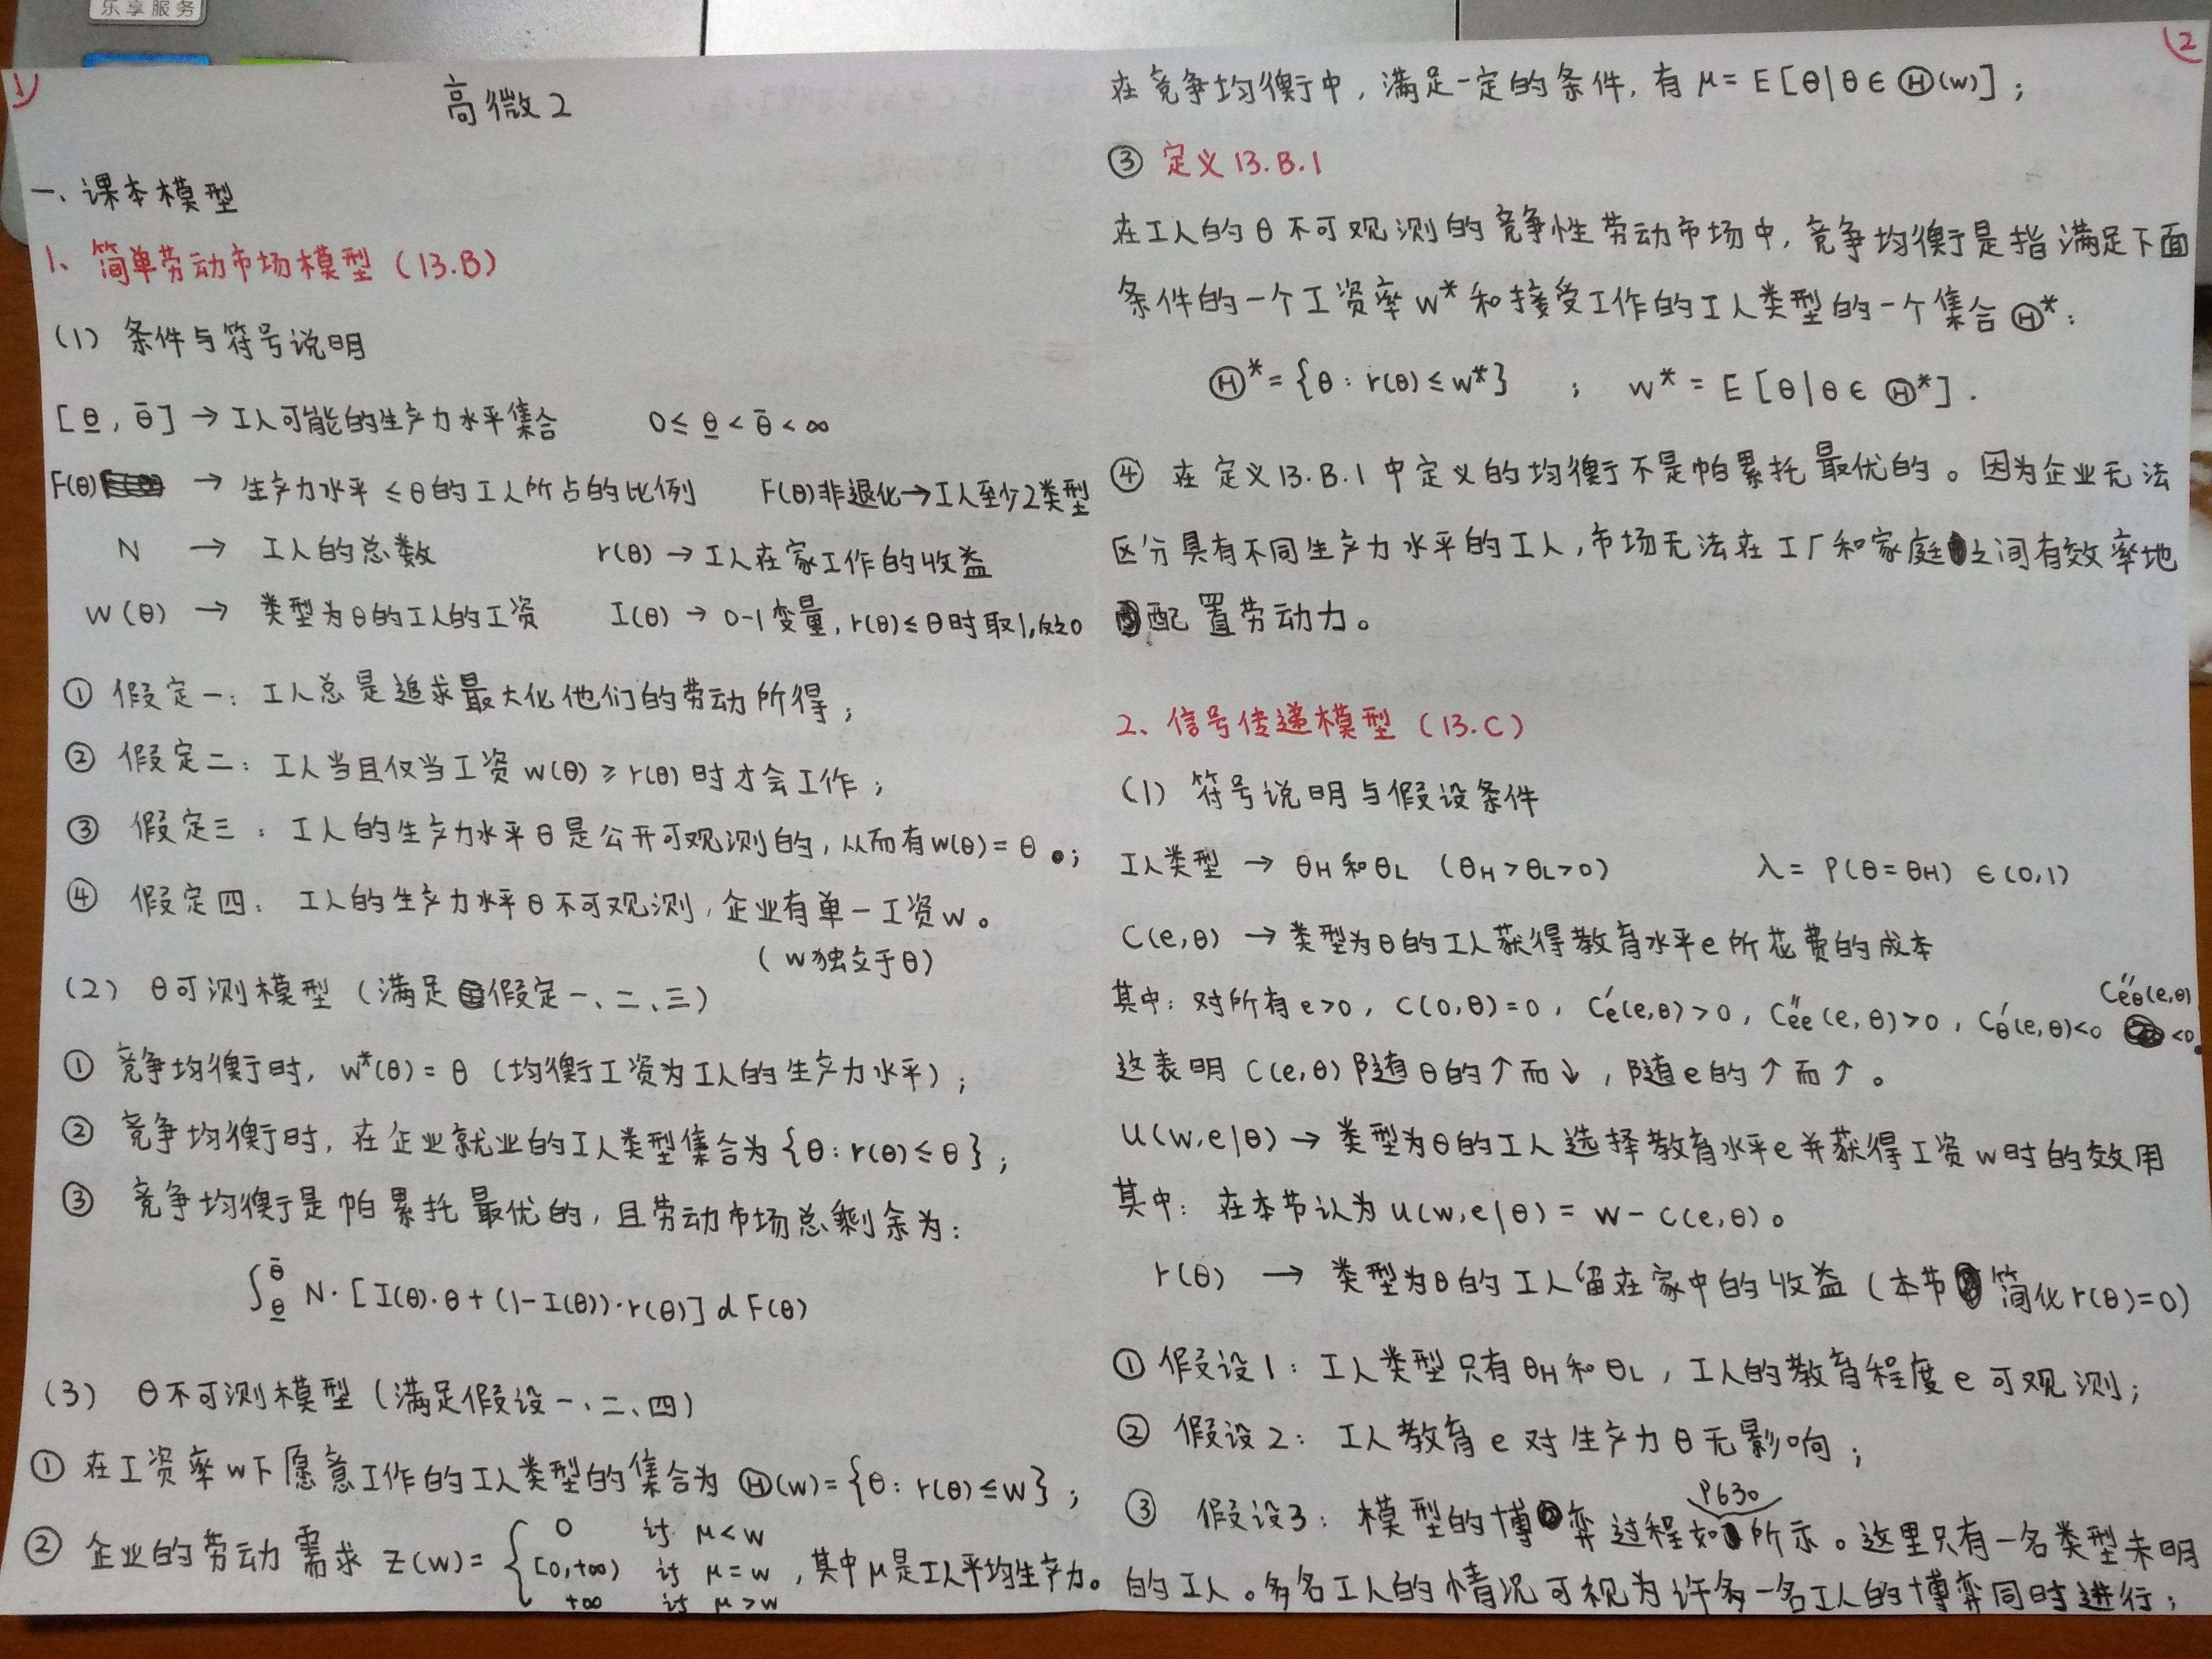 乐享服务
1
高微2
一、课本模型
1、简单劳动市场模型（13.B）
（1）条件与符号说明
[θ̲, θ̄] → 工人可能的生产力水平集合 0≤θ̲<θ̄<∞
F(θ) → 生产力水平≤θ的工人所占的比例 F(θ)非退化→工人至少2类型
N → 工人的总数 r(θ) → 工人在家工作的收益
w(θ) → 类型为θ的工人的工资 I(θ) → 0-1变量, r(θ)≤θ时取1,反之0
① 假定一：工人总是追求最大化他们的劳动所得；
② 假定二：工人当且仅当工资w(θ)≥r(θ)时才会工作；
③ 假定三：工人的生产力水平θ是公开可观测的，从而有w(θ)=θ；
④ 假定四：工人的生产力水平θ不可观测，企业有单一工资w。
（w独立于θ）
（2）θ可测模型（满足假定一、二、三）
① 竞争均衡时，w*(θ)=θ（均衡工资为工人的生产力水平）；
② 竞争均衡时，在企业就业的工人类型集合为{θ: r(θ)≤θ}；
③ 竞争均衡是帕累托最优的，且劳动市场总剩余为：
∫_θ̲^θ̄ N·[I(θ)·θ+(1-I(θ))·r(θ)] dF(θ)
（3）θ不可测模型（满足假设一、二、四）
① 在工资率w下愿意工作的工人类型的集合为 Θ(w)={θ: r(θ)≤w}；
② 企业的劳动需求 z(w)= { 0 if μ<w
[0,+∞) if μ=w ，其中μ是工人平均生产力。
+∞ if μ>w
2
在竞争均衡中，满足一定的条件，有 μ=E[θ|θ∈Θ(w)]；
③ 定义13.B.1
在工人的θ不可观测的竞争性劳动市场中，竞争均衡是指满足下面
条件的一个工资率w*和接受工作的工人类型的一个集合Θ*：
Θ*={θ: r(θ)≤w*} ； w*=E[θ|θ∈Θ*].
④ 在定义13.B.1中定义的均衡不是帕累托最优的。因为企业无法
区分具有不同生产力水平的工人，市场无法在工厂和家庭之间有效率地
配置劳动力。
2、信号传递模型（13.C）
（1）符号说明与假设条件
工人类型 → θH和θL （θH>θL>0） λ=P(θ=θH)∈(0,1)
C(e,θ) → 类型为θ的工人获得教育水平e所花费的成本
其中：对所有e>0，C(0,θ)=0，C'e(e,θ)>0，C''ee(e,θ)>0，C'θ(e,θ)<0 C''eθ(e,θ)<0。
这表明C(e,θ)随θ的↑而↓，随e的↑而↑。
u(w,e|θ) → 类型为θ的工人选择教育水平e并获得工资w时的效用
其中：在本节认为u(w,e|θ)=w-c(e,θ)。
r(θ) → 类型为θ的工人留在家中的收益（本节简化r(θ)=0）
① 假设1：工人类型只有θH和θL，工人的教育程度e可观测；
② 假设2：工人教育e对生产力θ无影响；
③ 假设3：模型的博弈过程如P630所示。这里只有一名类型未明
的工人。多名工人的情况可视为许多一名工人的博弈同时进行；